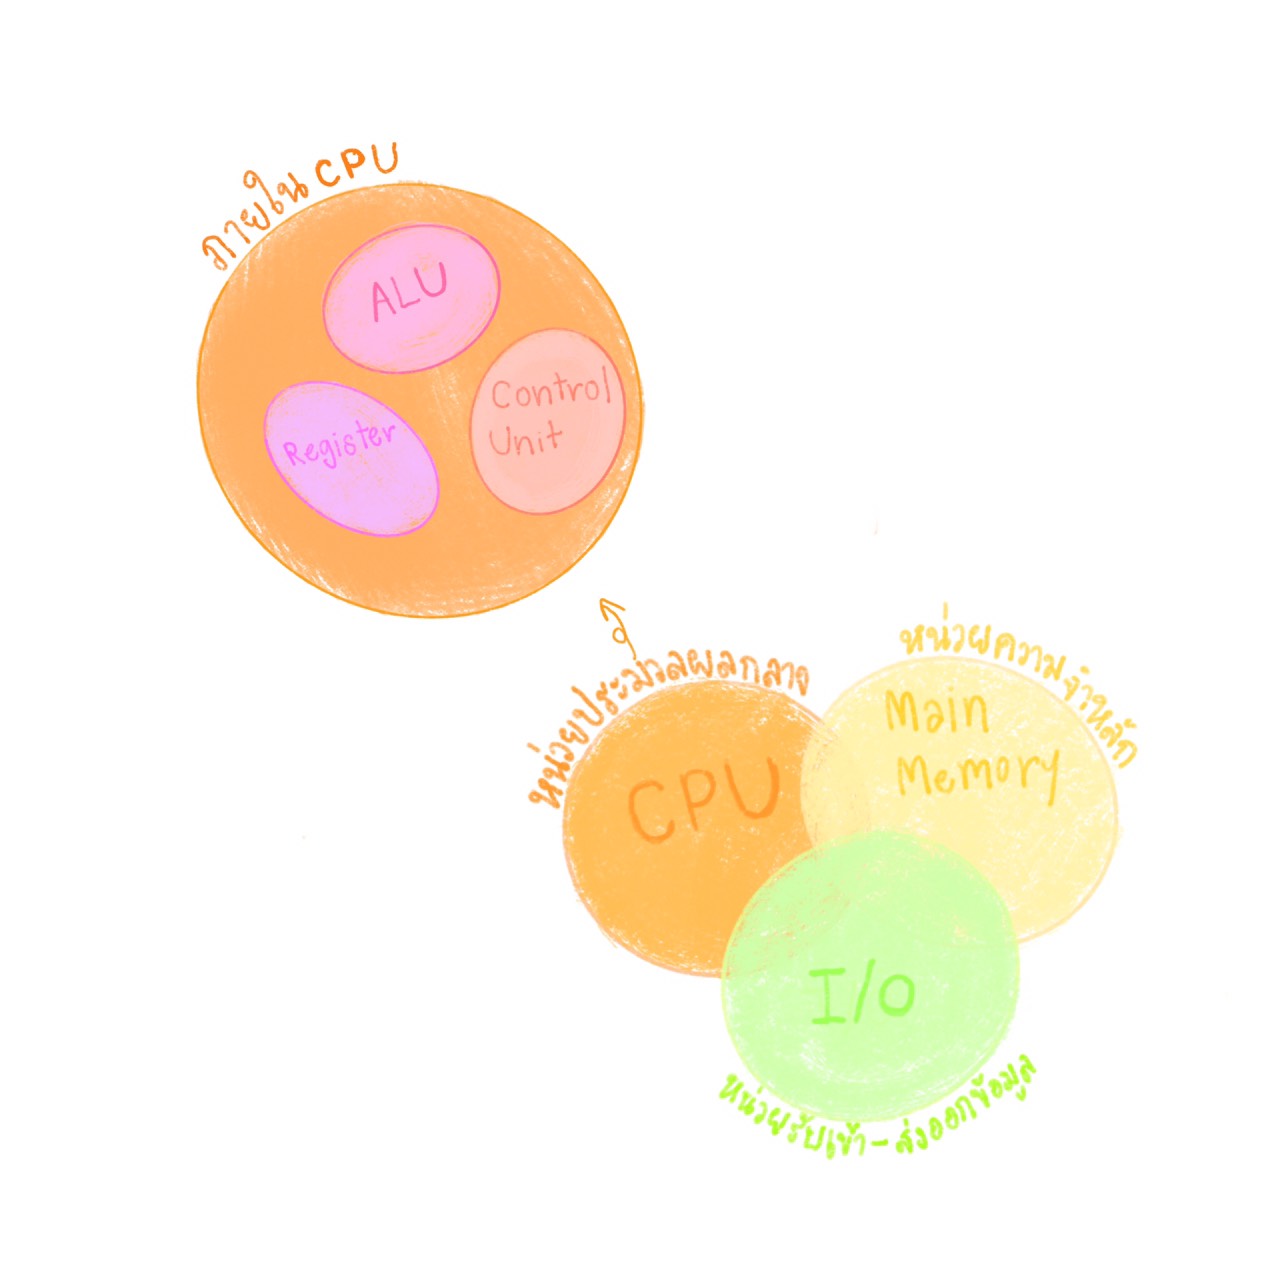 ภายใน CPU
ALU
Control
Unit
Register
หน่วยประมวลผลกลาง
CPU
หน่วยความจำหลัก
Main
Memory
I/O
หน่วยรับเข้า-ส่งออกข้อมูล